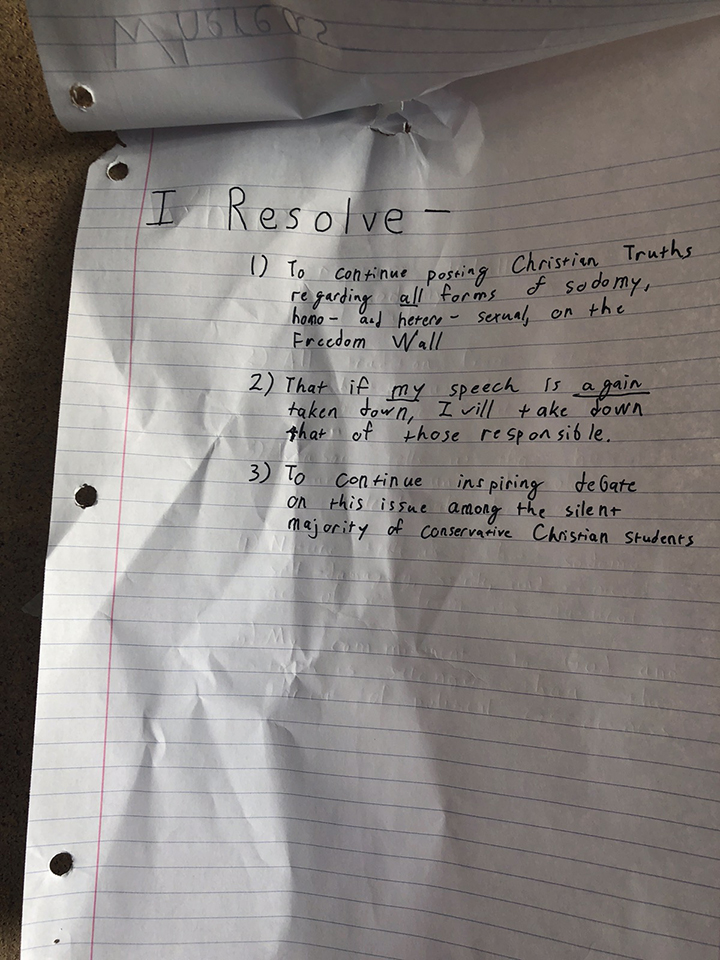 I Resolve -
1) To continue posting Christian Truths
regarding all forms of sodomy,
homo- and hetero- sexual, on the
Freedom Wall
2) That if my speech is again
taken down, I will take down
that of those responsible.
3) To continue inspiring debate
on this issue among the silent
majority of conservative Christian students